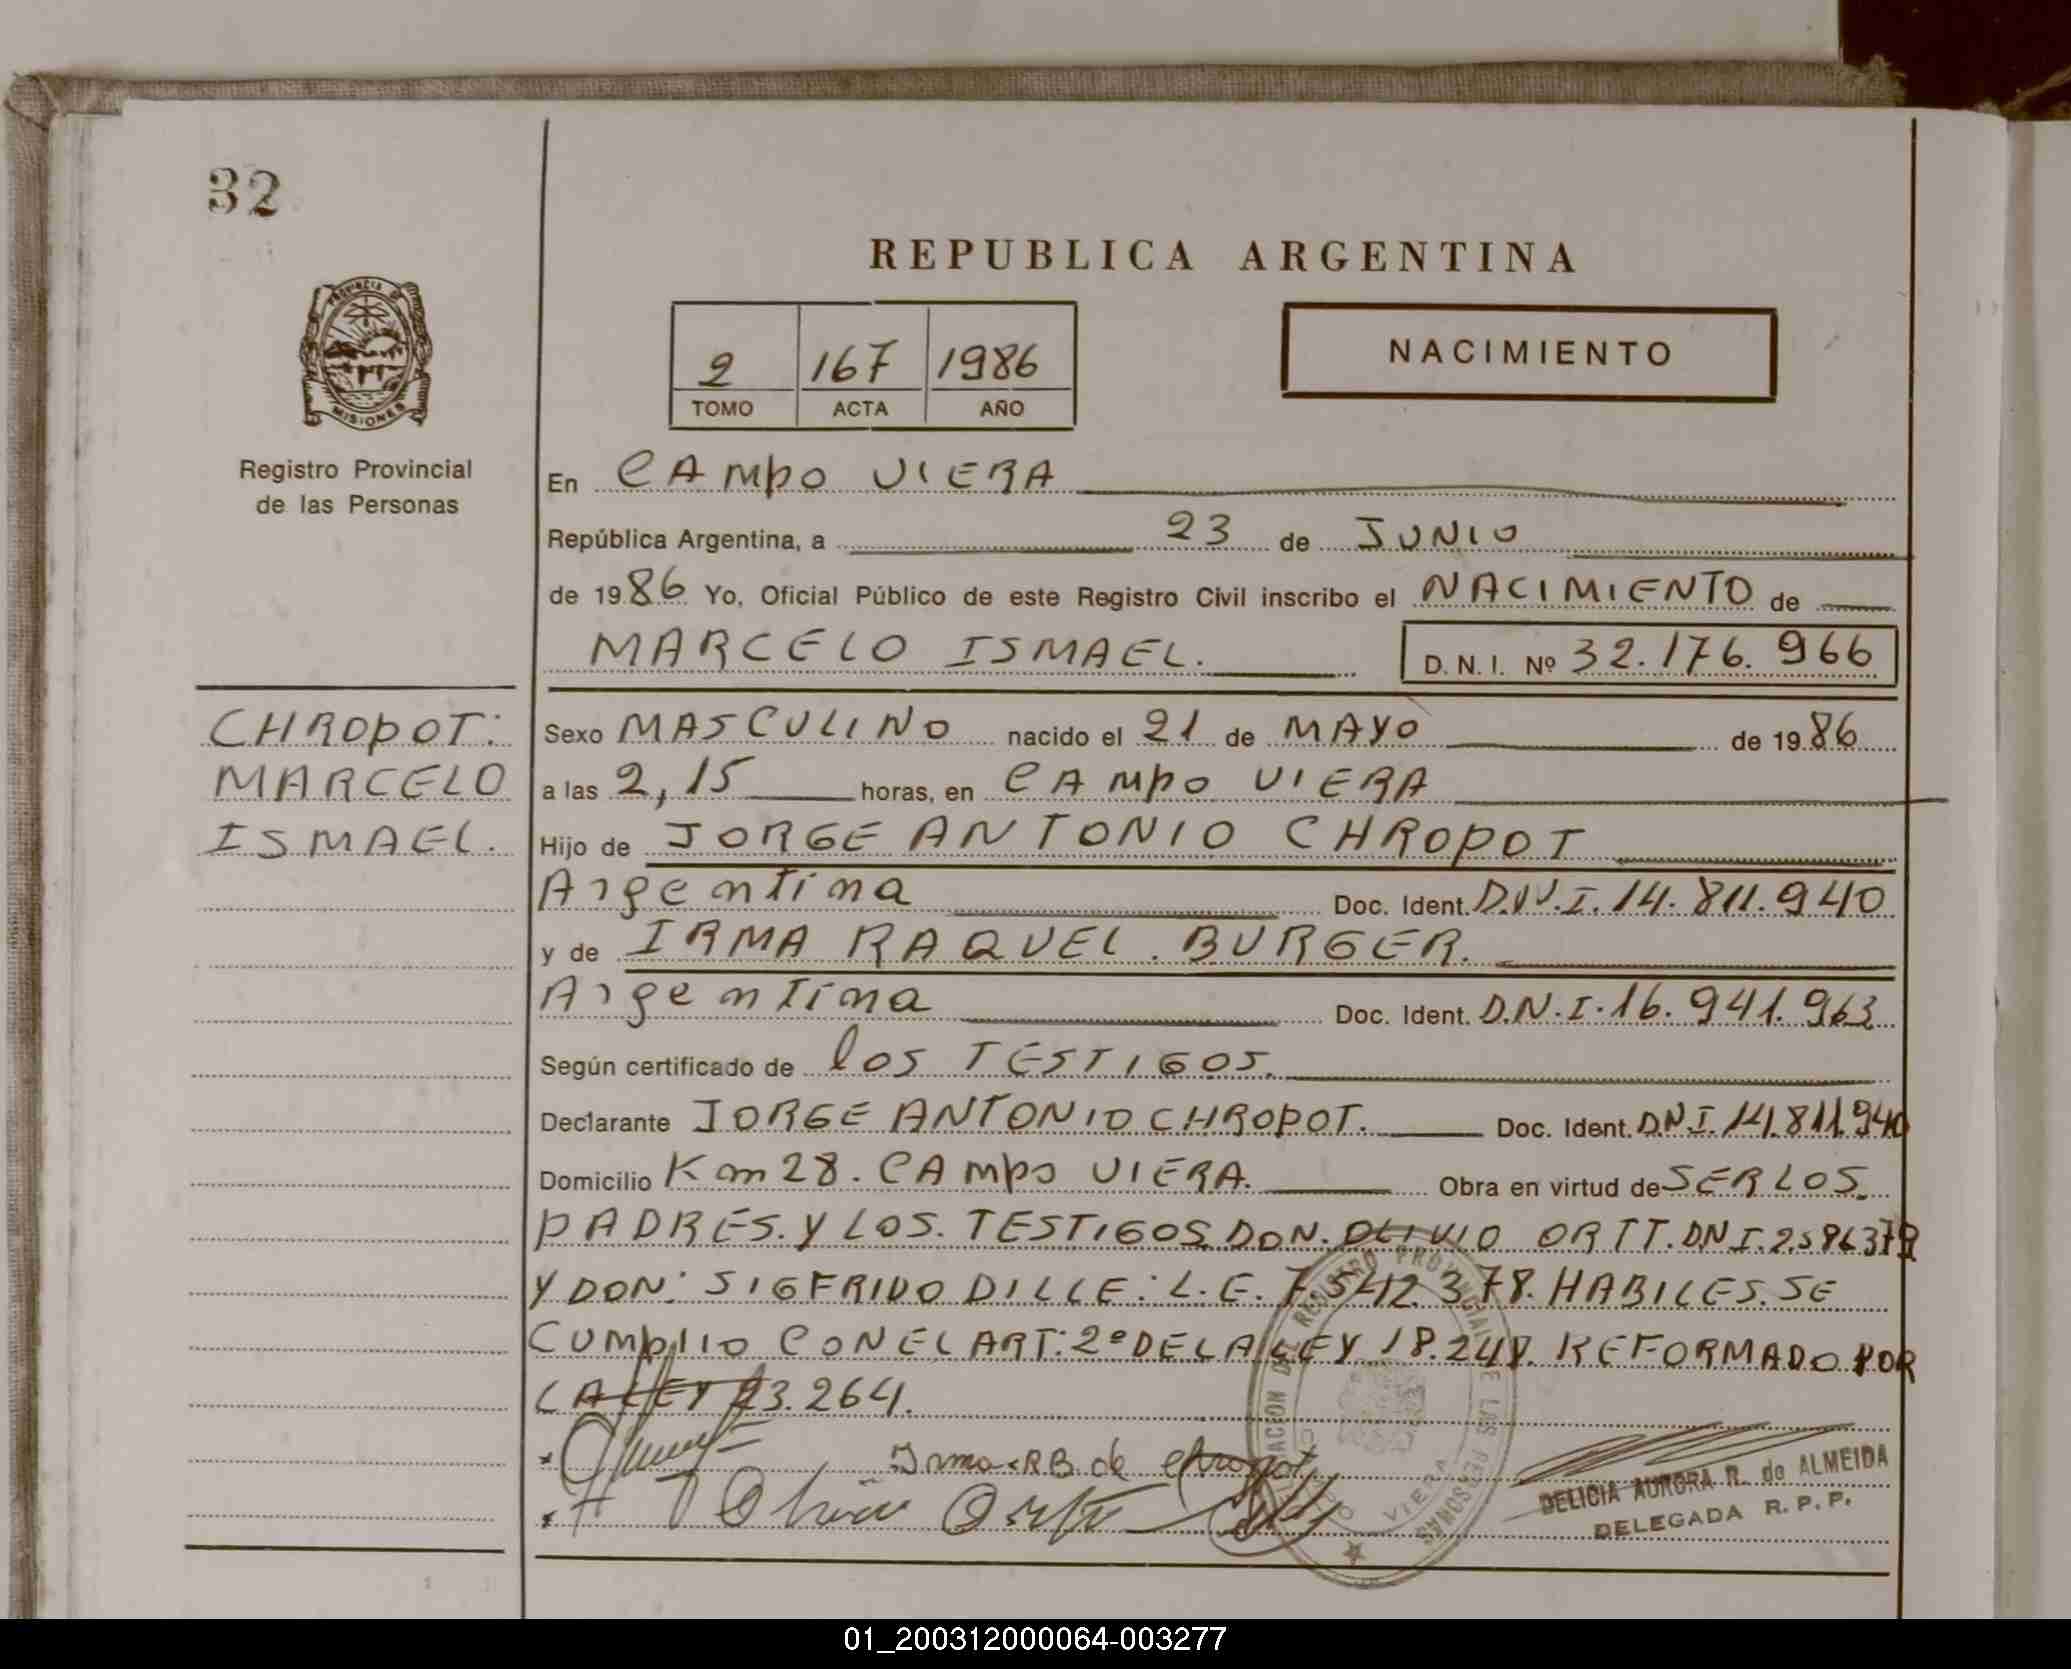 32
REPUBLICA ARGENTINA
PROVINCIA DE
MISIONES
2 167 1986
TOMO ACTA AÑO
NACIMIENTO
Registro Provincial
de las Personas
En CAMPO VIERA
República Argentina, a 23 de JUNIO
de 1986 Yo, Oficial Público de este Registro Civil inscribo el NACIMIENTO de
MARCELO ISMAEL. D. N. I. Nº 32.176.966
CHROPOT:
MARCELO
ISMAEL.
Sexo MASCULINO nacido el 21 de MAYO de 1986
a las 2,15 horas, en CAMPO VIERA
Hijo de JORGE ANTONIO CHROPOT
Argentina Doc. Ident. D.N.I. 14.811.940
y de IRMA RAQUEL. BURGER.
Argentina Doc. Ident. D.N.I. 16.941.963
Según certificado de los TESTIGOS.
Declarante JORGE ANTONIO CHROPOT. Doc. Ident. D.N.I. 14.811.940
Domicilio Km 28. CAMPO VIERA. Obra en virtud de SER LOS
PADRES. Y LOS. TESTIGOS DON. OLIVIO ORTT. DNI.
Y DON: SIGFRIDO DILLE: L.E. 7.542.378. HABILES. SE
CUMPLIO CON EL ART: 2º DE LA LEY 18.248. REFORMADO POR
LA LEY 23.264.
Irma RB de Chropot
Olivio Ortt
REGISTRO PROVINCIAL DE LAS PERSONAS
VIERA
DELICIA AURORA R. de ALMEIDA
DELEGADA R. P. P.
01_200312000064-003277